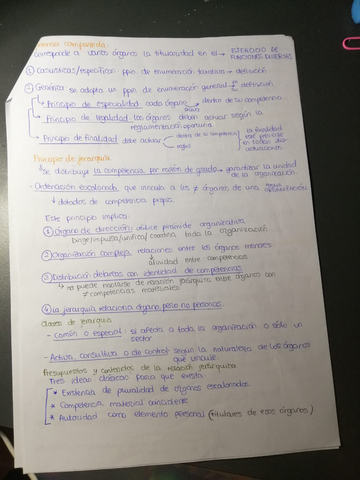 corresponde a varios órganos la titularidad en el → EJERCICIO DE
FUNCIONES DIVERSAS
① Casuísticas/específicos: ppio de enumeración definición
② Genérica: se adopta un ppio de enumeración general definición
Principio de especialidad: cada órgano dentro de su competencia
Principio de legalidad: los órganos deben actuar según la
reglamentación oportuna.
Principio de finalidad: debe actuar dentro de la competencia
reglas
la finalidad
actuaciones
Principio de jerarquía.
Se distribuye la competencia por razón de grado → garantizar la unidad
de la organización.
- Ordenación escalonada que vincula a los ≠ órganos de una
↓ dotados de competencia propia.
Este principio implica:
① Órgano de dirección: vértice pirámide organizativa
dirige/impulsa/unifica/coordina toda la organización
② Organización compleja: relaciones entre los órganos menores
entre competencias
③ Distribución de tareas con identidad de competencias
↳ no puede hablarse de relación jerárquica entre órganos con
≠ competencias materiales
④ La jerarquía relaciona órganos, pero no personas.
Clases de jerarquía
- Común o especial: si afecta a toda la organización o sólo un
sector
- Activa, consultiva o de control: según la naturaleza de los órganos
que vincule
Presupuestos y contenidos de la relación jerárquica
Tres ideas clásicas para que exista:
* Existencia de pluralidad de órganos escalonados.
* Competencia material coincidente
* Autoridad como elemento personal (titulares de esos órganos)